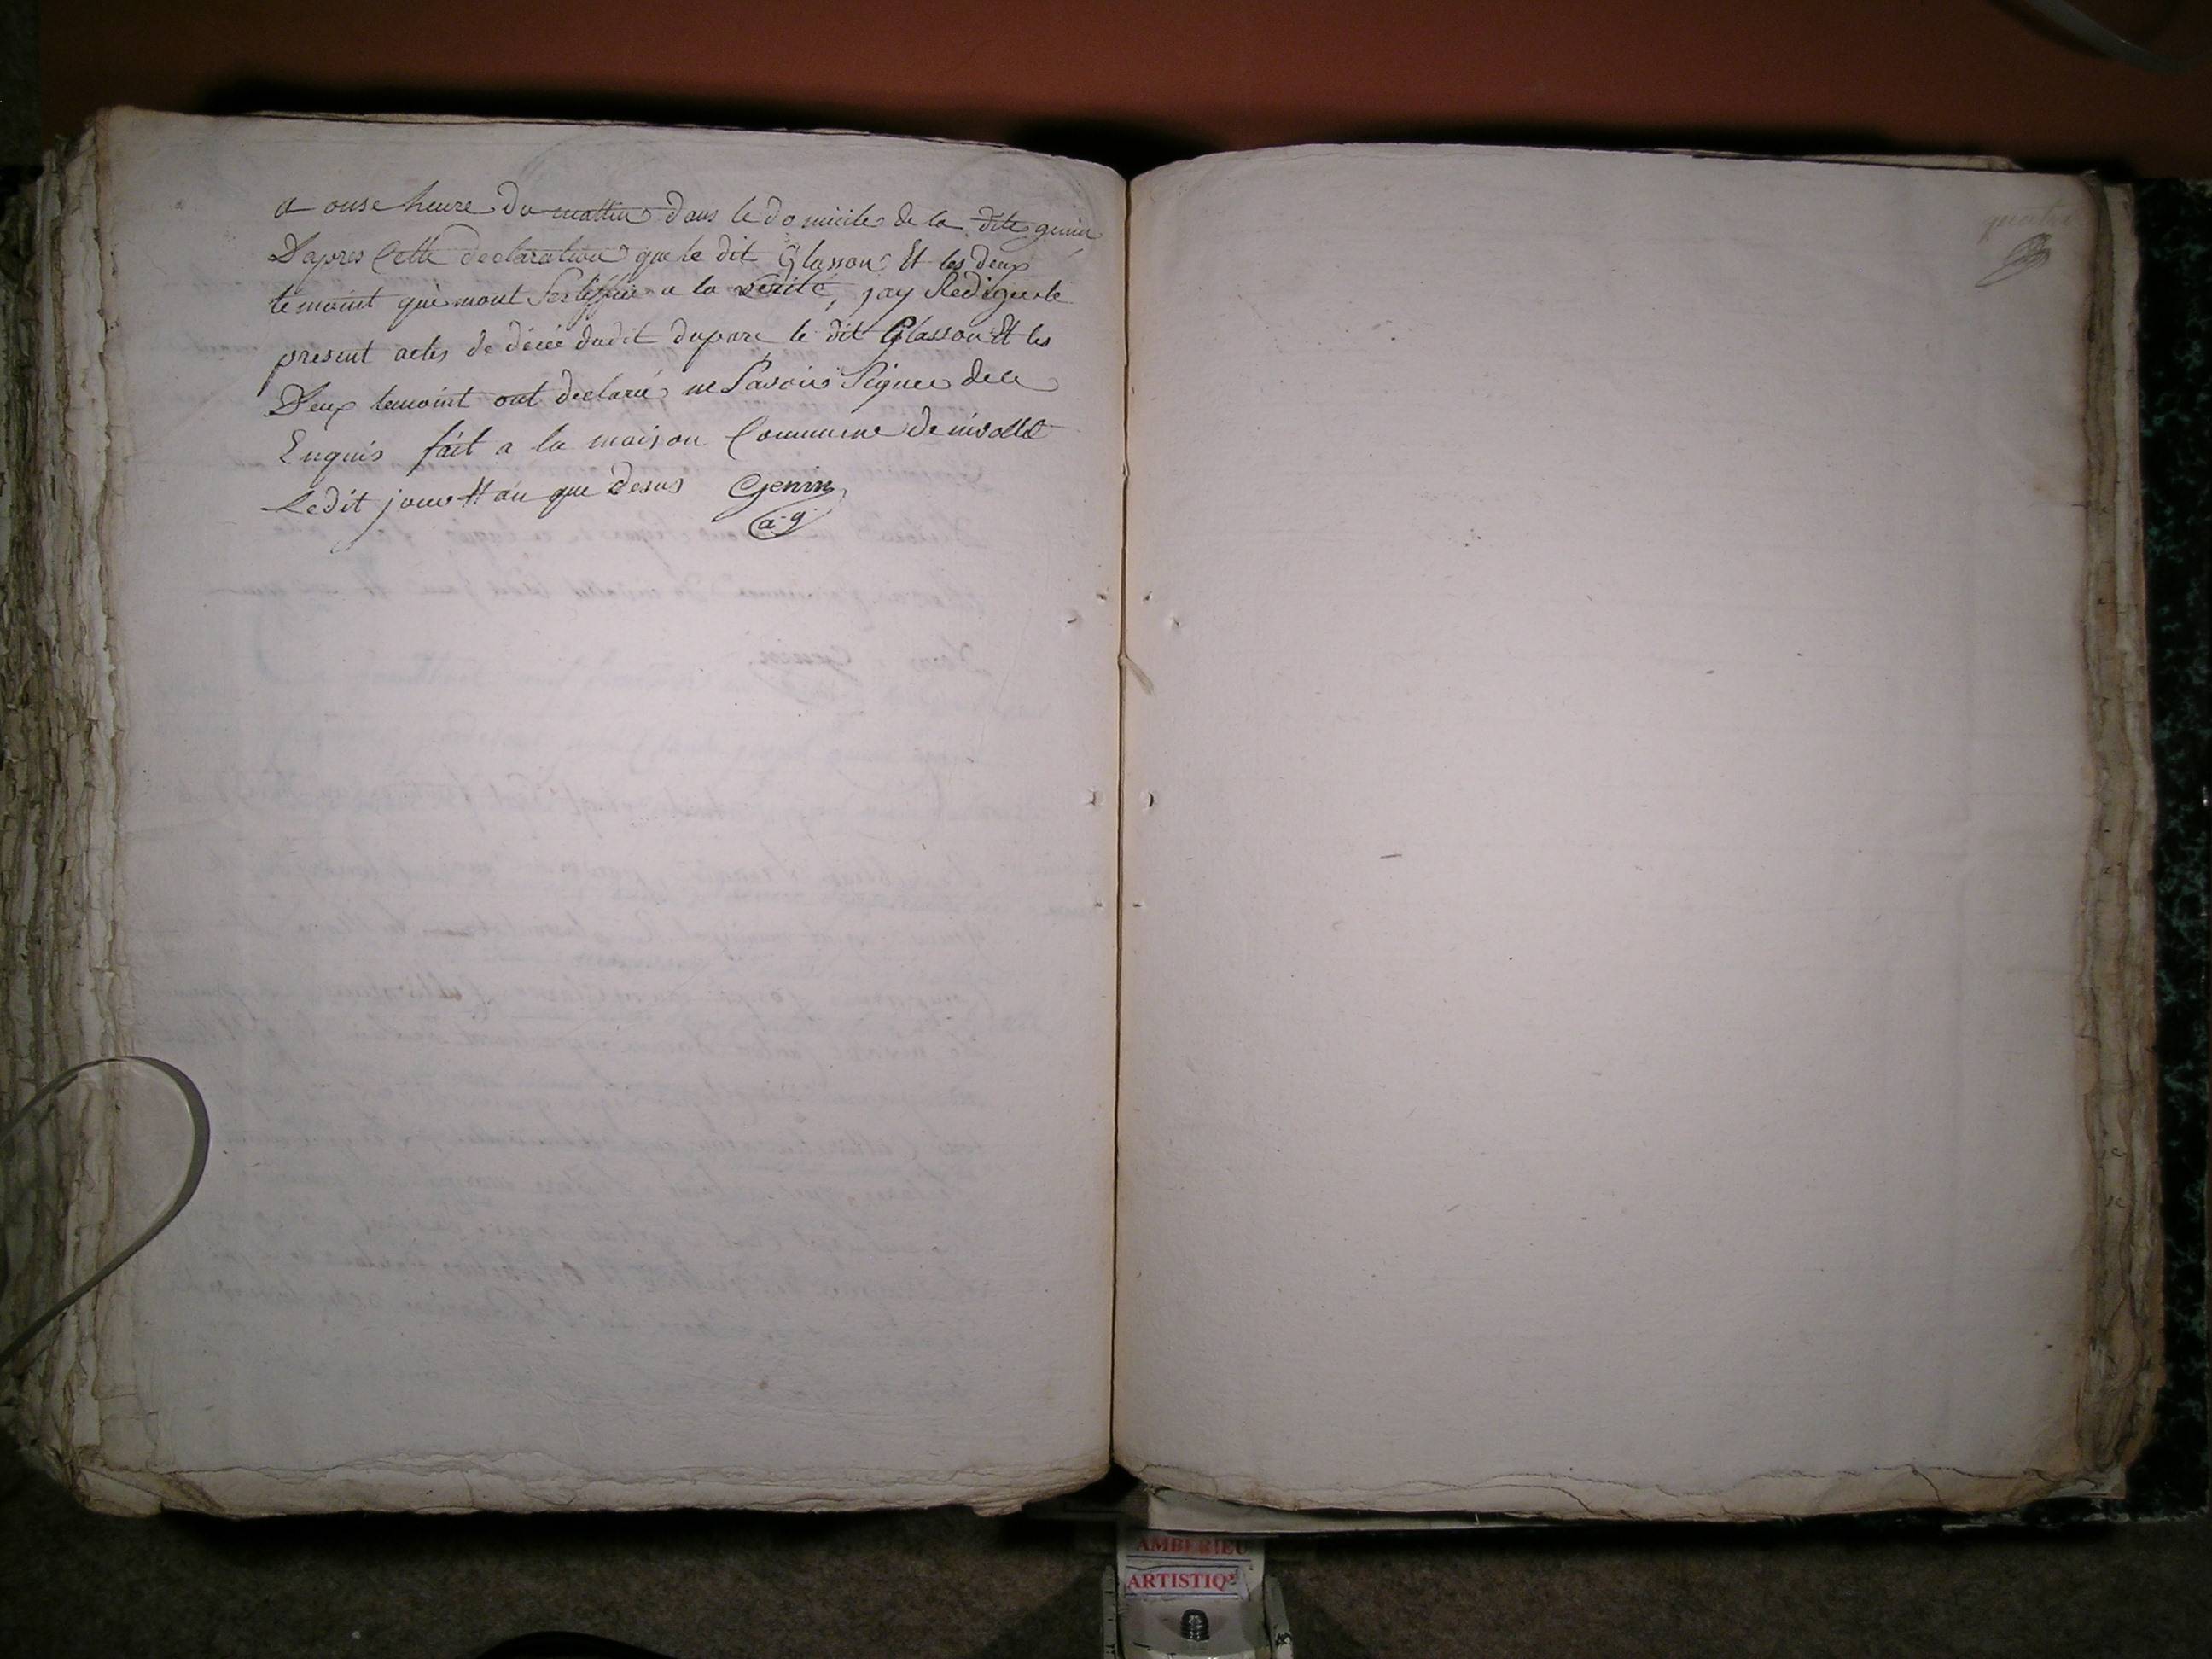 a onse heure du mattin dans le domicile de la dite genin
D'apres Cette declaration que le dit Glasson Et les deux
temoint que mont Sertiffiée a la verité, jay Redigue le
present actes de décée dudit dupare le dit Glasson Et les
Deux temoint ont declaré ne Savoir Signer de ce
Enquis fait a la maison Commune de nivollet
Ledit jour Et an que desus Genin
a·g·
quatre
AMBERIEU
ARTISTIQ